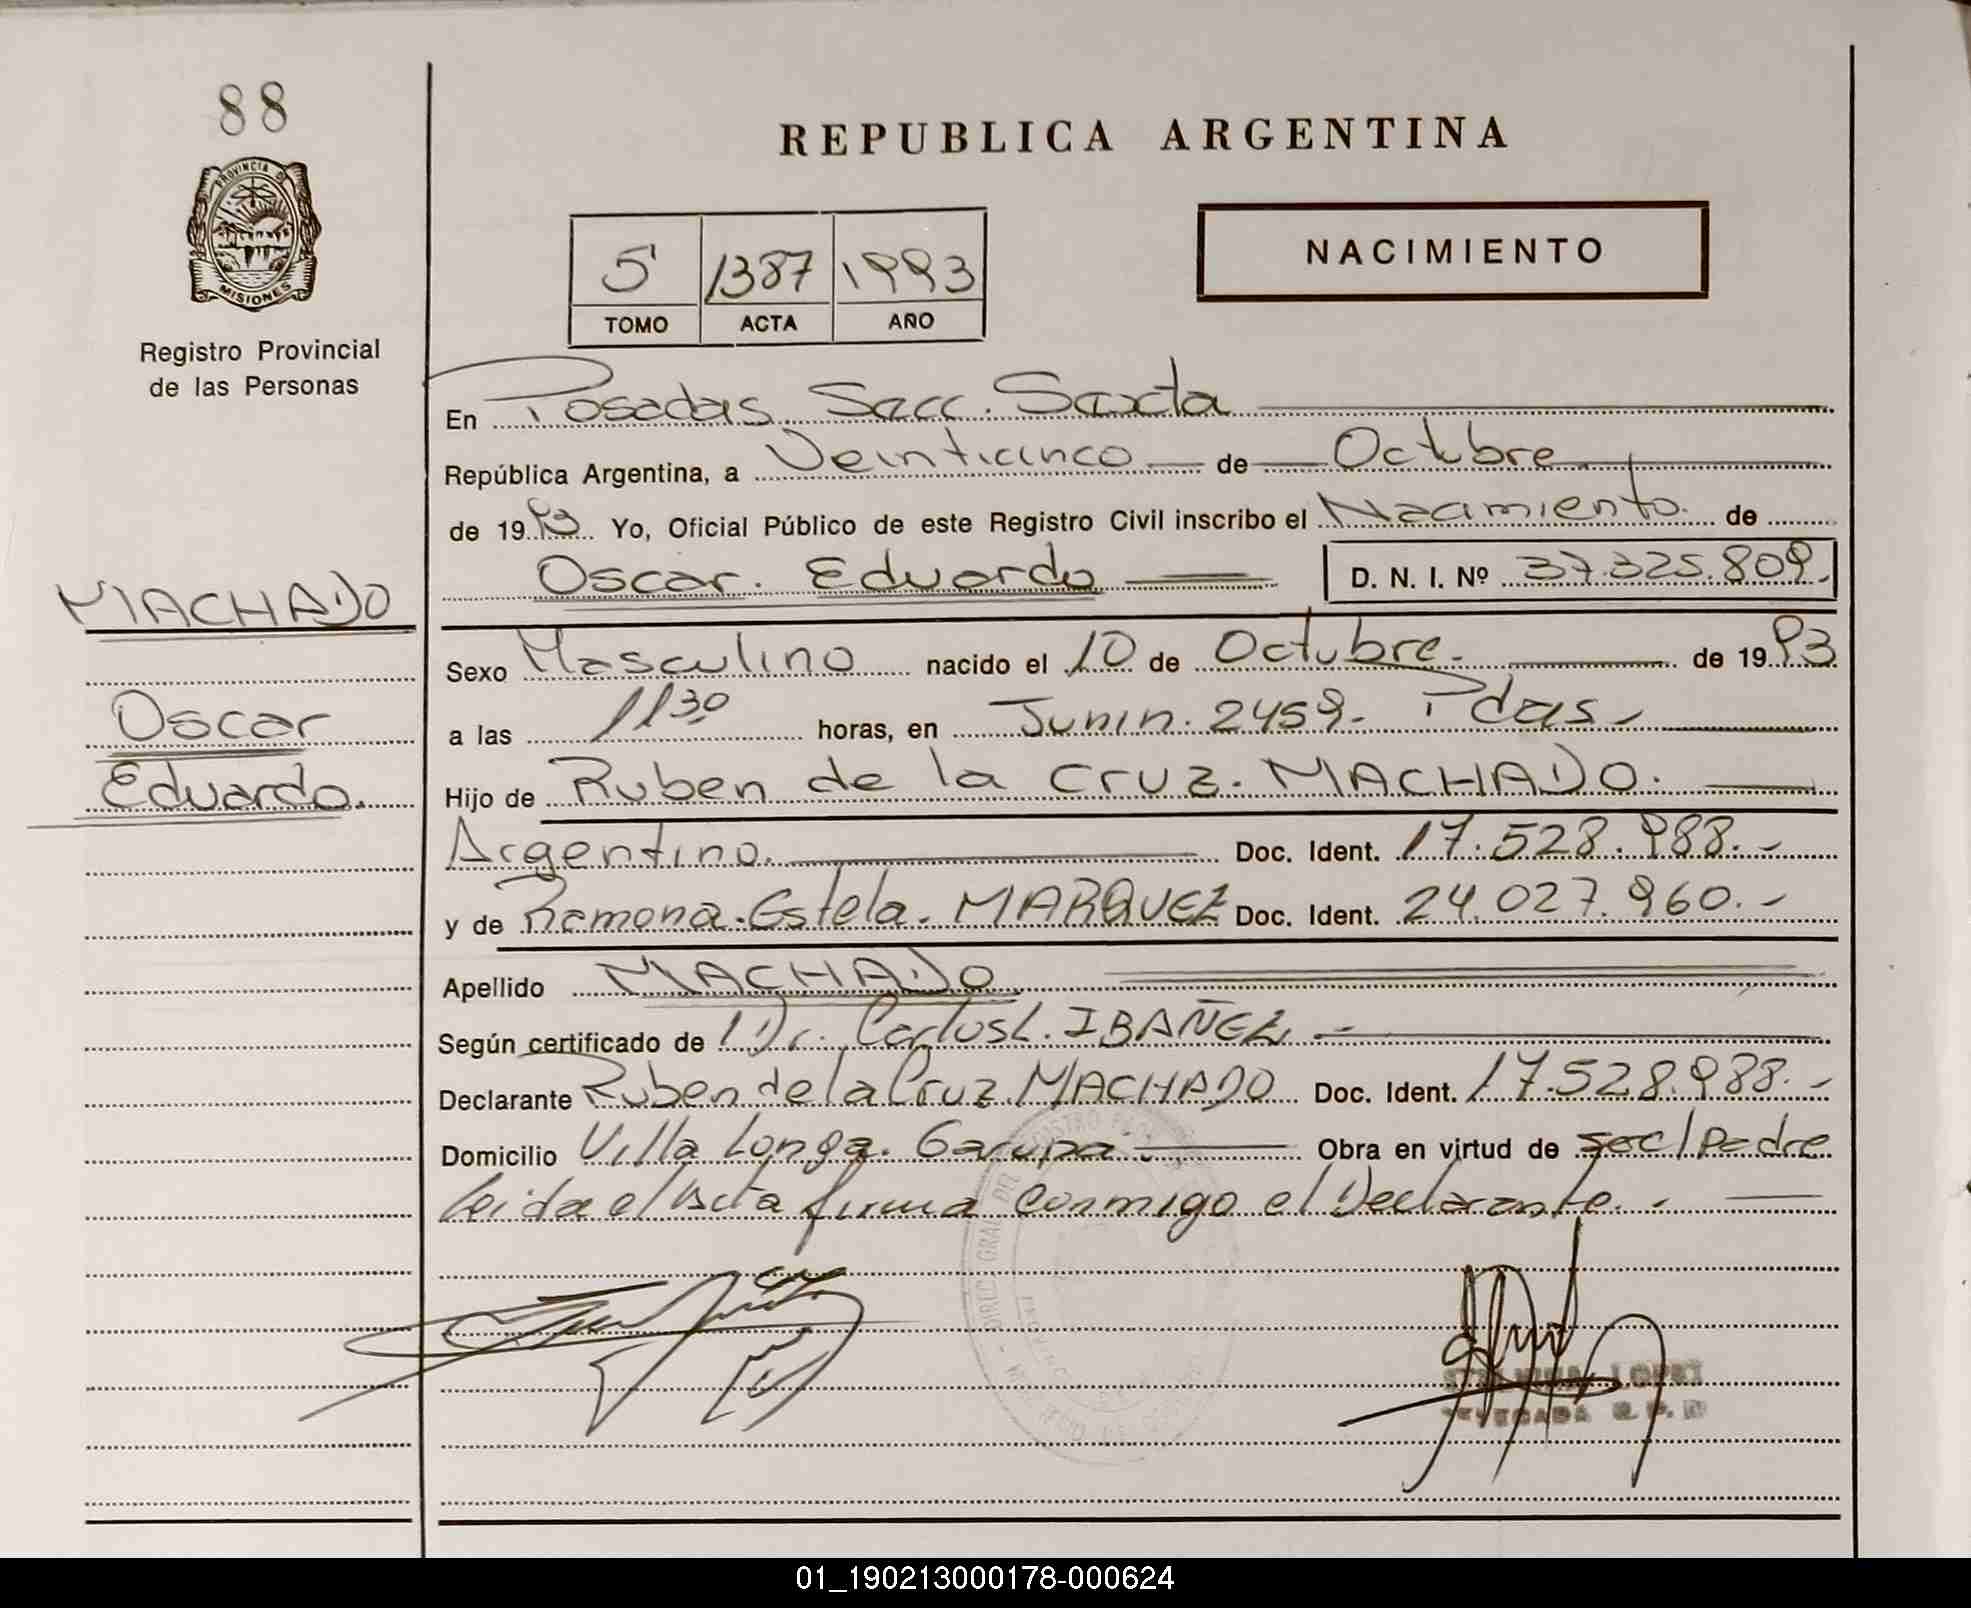 88
PROVINCIA DE
MISIONES
Registro Provincial
de las Personas
MACHADO
Oscar
Eduardo.
REPUBLICA ARGENTINA
5 1387 1993
TOMO ACTA AÑO
NACIMIENTO
En Posadas Secc. Sexta
República Argentina, a Veinticinco de Octubre
de 1993 Yo, Oficial Público de este Registro Civil inscribo el Nacimiento de
Oscar. Eduardo D. N. I. Nº 37.325.809.
Sexo Masculino nacido el 10 de Octubre. de 1993
a las 1130 horas, en Junin. 2459. Pdas.
Hijo de Ruben de la Cruz. MACHADO.
Argentino. Doc. Ident. 17.528.988.-
y de Ramona. Estela. MARQUEZ Doc. Ident. 24.027.960.-
Apellido MACHADO
Según certificado de Dr. Carlos L. IBAÑEZ. -
Declarante Ruben de la Cruz MACHADO Doc. Ident. 17.528.988.-
Domicilio Villa Longa. Garupa Obra en virtud de ser el Padre
Leida el Acta firma conmigo el Declarante.-
LOPEZ
01_190213000178-000624